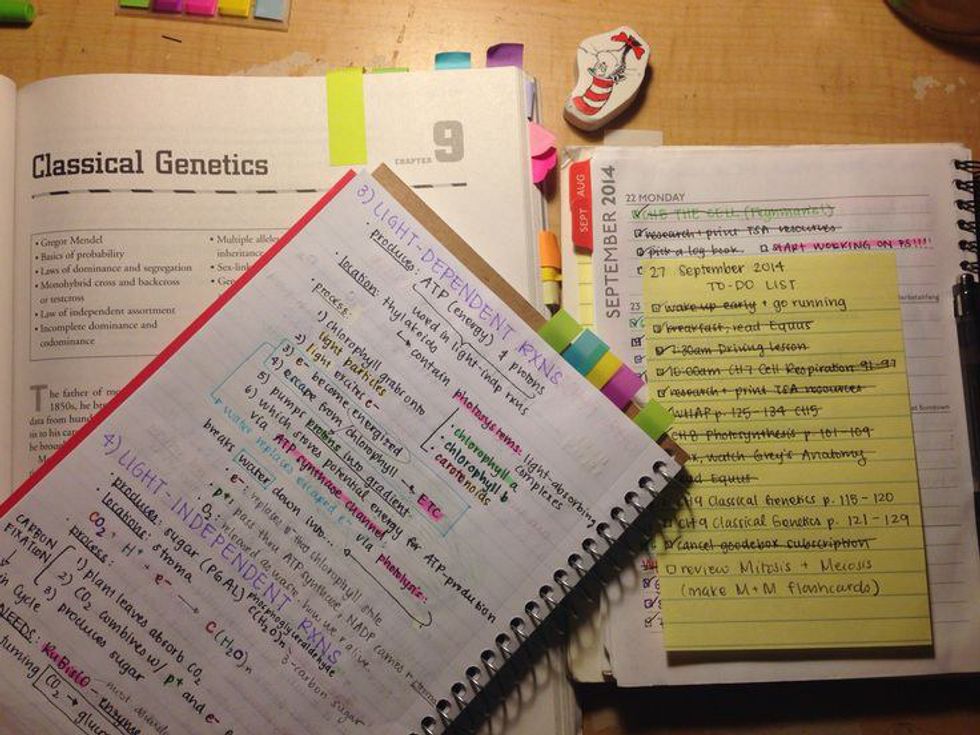 Classical Genetics
CHAPTER 9
• Gregor Mendel
• Basics of probability
• Laws of dominance and segregation
• Monohybrid cross and backcross
or testcross
• Law of independent assortment
• Incomplete dominance and
codominance
• Multiple alleles
inheritance
• Sex-link
• Gen
The father of
1850s, he
data from
in to his
he
3) LIGHT-DEPENDENT RXNS
• produces: ATP (energy) & protons
used in light-indp rxns
• location: thylakoids
→ contain photosystems: light-absorbing complexes
• chlorophyll a
• chlorophyll b
• carotenoids
• process:
1) chlorophyll grabs onto
light particles
2) light excites e-
3) e- become energized
4) escape from chlorophyll → ETC
5) pumps protons into gradient
6) which stores potential energy for ATP-production
via ATP synthase channel
↳ water replaces escaped e- via photolysis:
breaks water down into...
• e-: replaces the chlorophyll stole
• p+: pass thru ATP synthase, NADP carries
• O2: released as waste; how we r alive.
4) LIGHT-INDEPENDENT RXNS
• produces: sugar (PGAL) C(H2O)n
phosphoglyceraldehyde
3-carbon sugar
• locations: stroma
CO2 + H+ + e- → C(H2O)n
CARBON
FIXATION
process:
1) plant leaves absorb CO2
2) CO2 combines w/ p+ and e-
3) produces sugar
Cycle
NEEDS: RuBisCO - enzyme
turning CO2 →
AUG
SEPT
SEPTEMBER 2014
22 MONDAY
CH8 THE CELL
research + print TSA resources
pick a log book
START WORKING ON PS!!!!
23
27 September 2014
TO-DO LIST
wake up early + go running
breakfast, read Equus
7:30am Driving lesson
10:00am CH7 Cell Respiration 91-97
research + print TSA resources
WHAP p. 125-134 CH5
CH8 Photosynthesis p. 101-109
watch Grey's Anatomy
read Equus
CH9 Classical Genetics p. 115-120
CH9 Classical Genetics p. 121-129
cancel goodebox subscription
review Mitosis + Meiosis
(make M+M flashcards)